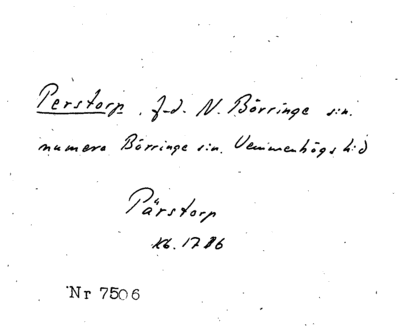 Perstorp, f.d. N. Börringe sn.
numera Börringe sn. Vemmenhögs hd
Pärstorp
kb. 1786
Nr 7506